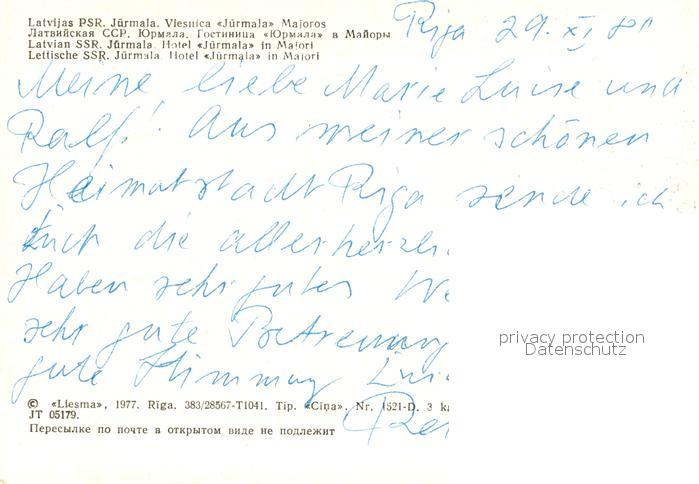 Latvijas PSR. Jūrmala. Viesnīca «Jūrmala» Majoros
Латвийская ССР. Юрмала. Гостиница «Юрмала» в Майоры
Latvian SSR. Jūrmala. Hotel «Jūrmala» in Majori
Lettische SSR. Jūrmala. Hotel «Jūrmala» in Majori
Riga 29. XI
Meine liebe Marie Luise und
Ralf! Aus meiner schönen
Heimatstadt Riga sende ich
Euch die allerherzli
Haben sehr gutes We
sehr gute Betreuung
gute Stimmung
privacy protection
Datenschutz
© «Liesma», 1977. Rīga. 383/28567-T1041. Tip. «Cīņa». Nr. 1521-D. 3 ka
JT 05179.
Пересылке по почте в открытом виде не подлежит